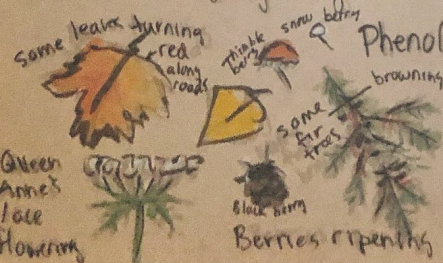 some leaves turning
red
along
roads
Thimble
berry
snow berry
Phenol
browning
some
fir
trees
Queen
Anne's
lace
flowering
Black berry
Berries ripening